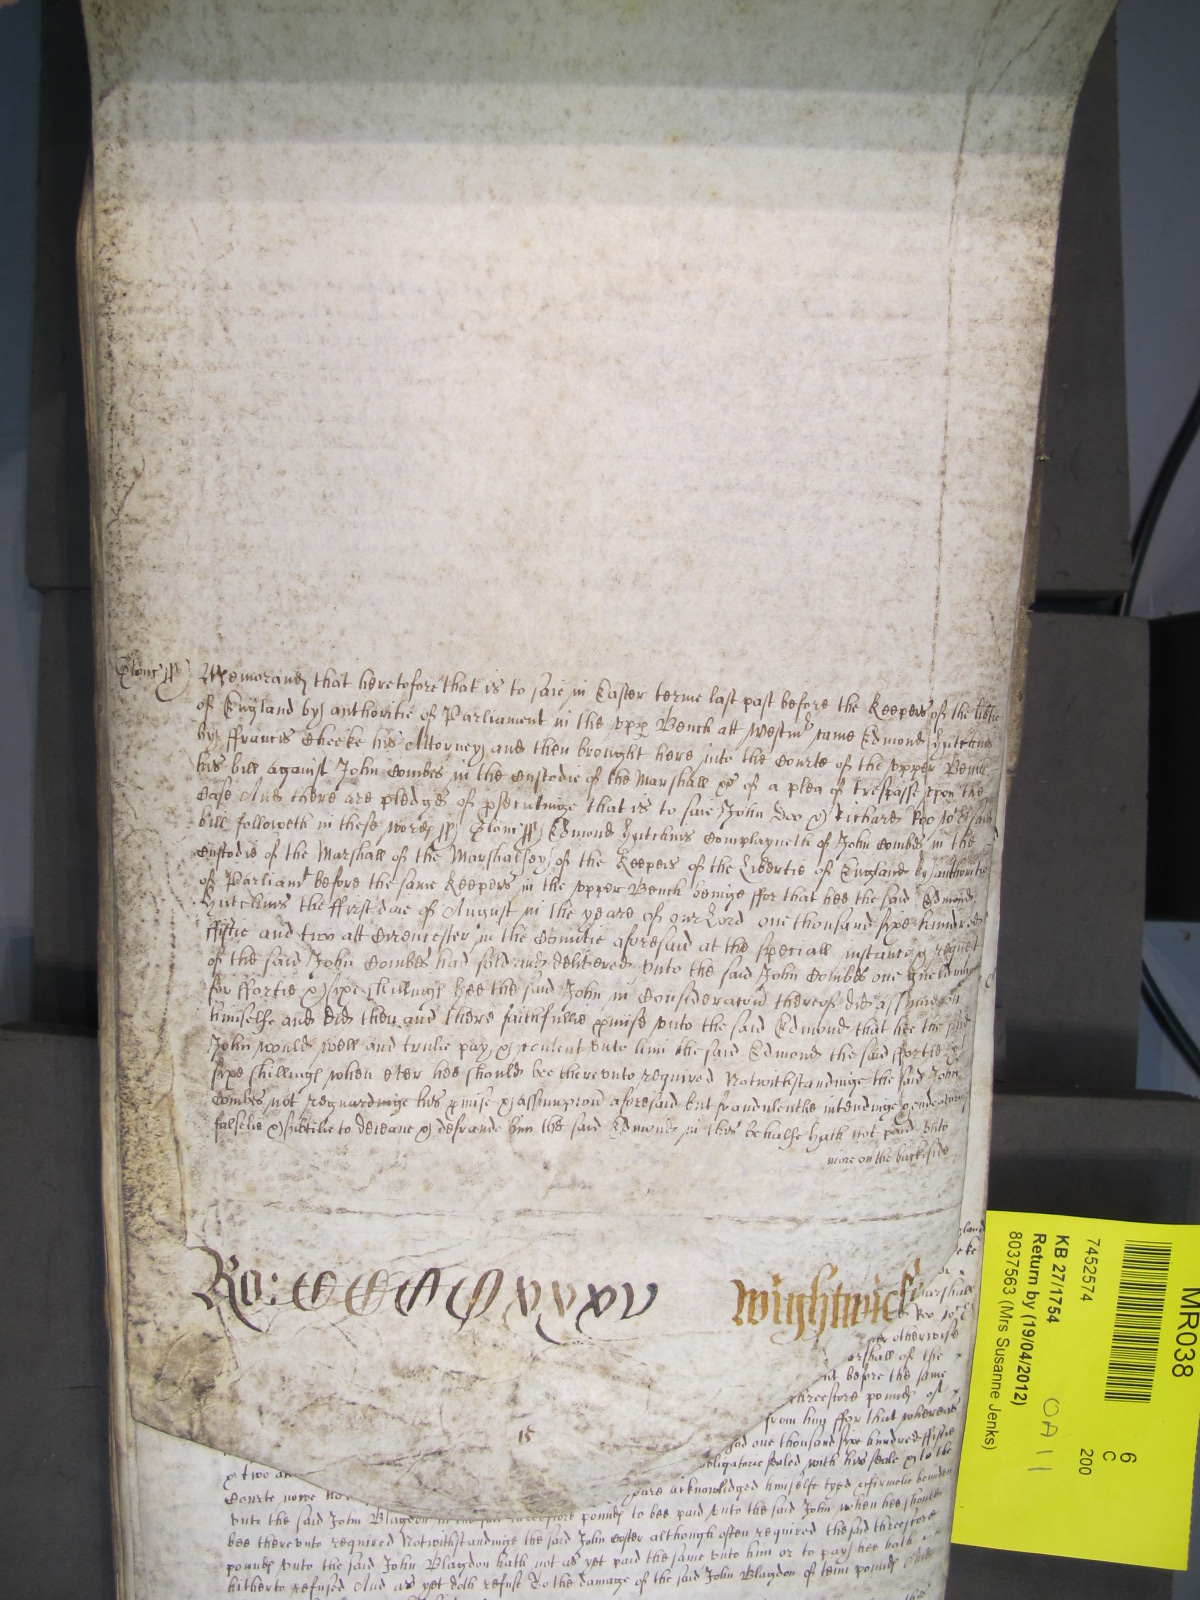 Glouc ss
Memorand that heretofore that is to saie in Easter terme last past before the Keepers of the libtie
of England by authoritie of Parliament in the vpp Bench att Westmr came Edmond Hutchins
by ffrancis Cheeke his Attorney and then brought here into the Courte of the vpper Bench
his bill against John Combes in the Custodie of the Marshall &c of a plea of trespasse vpon the
Case And there are pledges of psecutinge that is to saie John Doo & Richard Roo wch said
bill followeth in these words ss Glouc ss Edmond Hutchins Complayneth of John Combes in the
Custodie of the Marshall of the Marshalsey of the Keepers of the Libertie of England by authoritie
of Parliamt before the same Keepers in the vpper Bench beinge ffor that hee the said Edmond
Hutchins the ffirst daie of August in the yeare of our Lord one thousand sixe hundred
ffiftie and two att Cirencester in the Countie aforesaid at the speciall instance & request
of the said John Combes had sold and delivered vnto the said John Combes one
for ffortie & sixe shillings hee the said John in Consideracon thereof did assume vpon
himselfe and did then and there faithfullie pmise vnto the said Edmond that hee the said
John would well and trulie pay & content vnto him the said Edmond the said ffortie &
sixe shillings when ever hee should bee therevnto required Notwithstandinge the said John
Combes not reguardinge his pmise & assumpcon aforesaid but fraudulentlie intendinge
falselie & subtilie to deceave & defraude him the said Edmond in this behalfe hath not paid vnto
more on the backside
Ro: CCCCxxxv Wightwick
15
gland
eke
Marshall
Roo wch
er otherwise
arshall of the
nt before the same
threescore pounds of
from him ffor that whereas
god one thousand sixe hundred ffiftie
& two att obligatorie sealed with his seale & to the
Courte nowe here acknowledged himselfe tyed & firmelie bounden
vnto the said John Blagdon in the said threescore pounds to bee paid vnto the said John when hee should
bee therevnto required Notwithstandinge the said John Coster although often required the said threescore
pounds vnto the said John Blagdon hath not as yet paid the same vnto him or to pay hee hath
hitherto refused And as yet doth refuse To the damage of the said John Blagdon of tenn pounds And
MR038
7452574
KB 27/1754
Return by (19/04/2012)
8037563 (Mrs Susanne Jenks)
6
C
200
OA 11